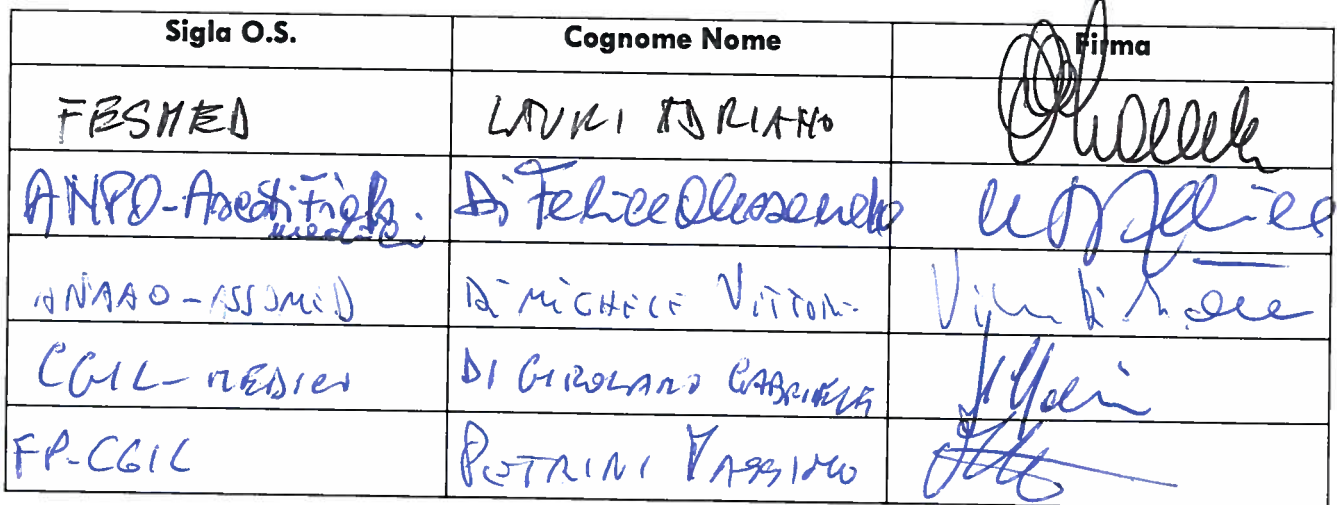 Sigla O.S. Cognome Nome Firma
FESMED LAURI ADRIANO
ANPO-Ascoti Fials medici Di Felice Alessandro
ANAAO-ASSOMED DI MICHELE VITTORI
CGIL-MEDICI DI GIROLAMO GABRIELE
FP-CGIL PETRINI MASSIMO